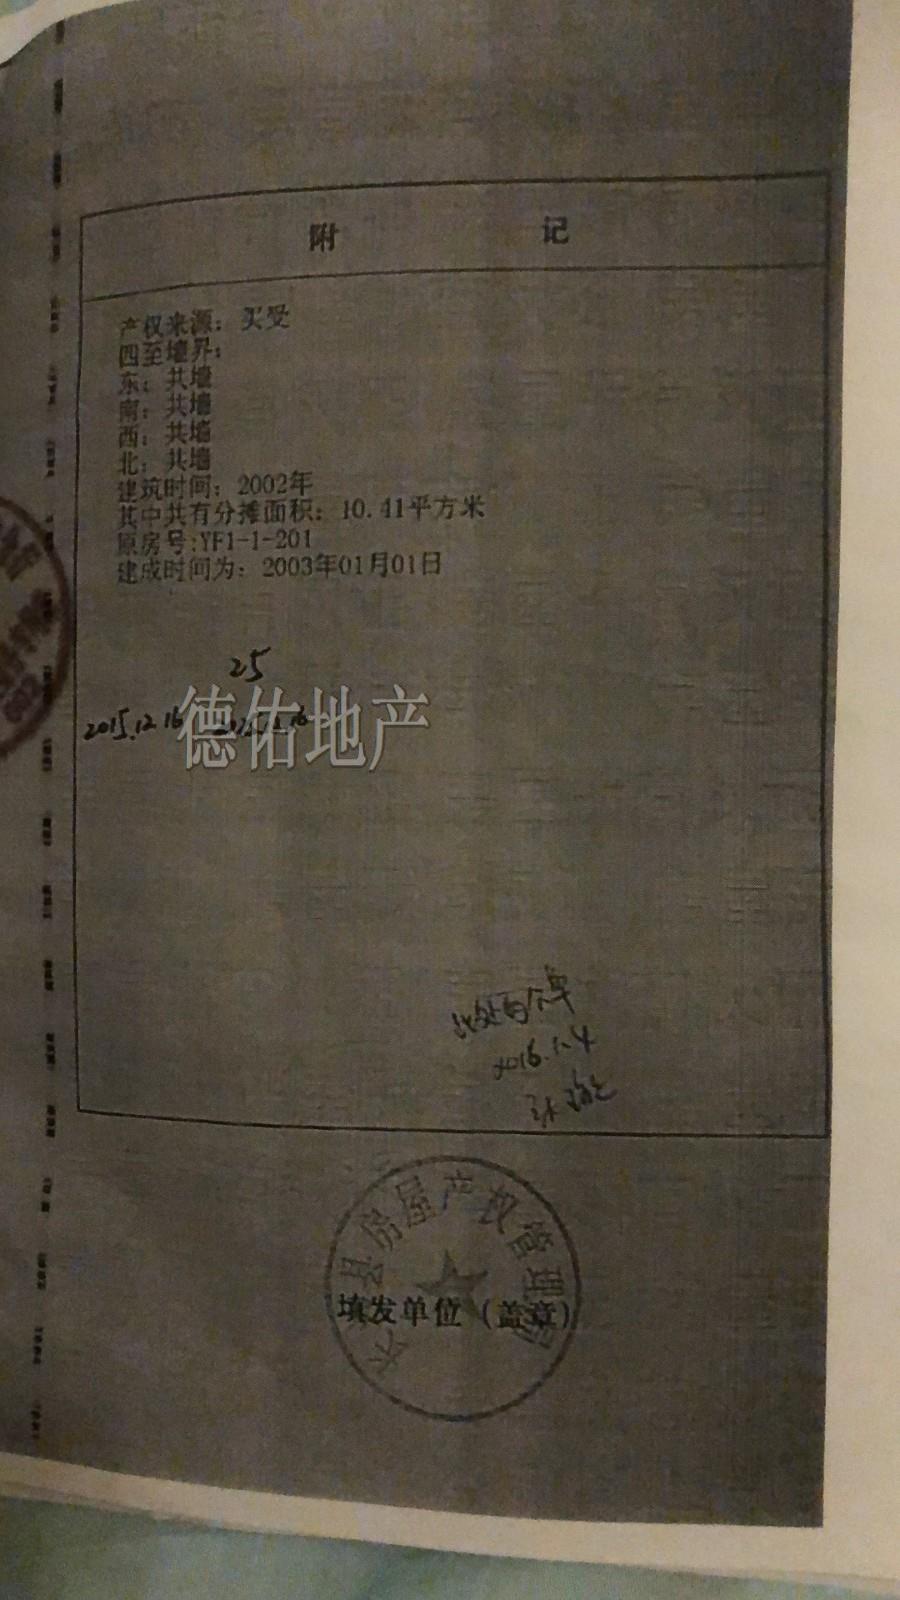 附 记
产权来源：买受
四至墙界：
东：共墙
南：共墙
西：共墙
北：共墙
建筑时间：2002年
其中共有分摊面积：10.41平方米
原房号:YF1-1-201
建成时间为：2003年01月01日
25
2015.12.16
德佑地产
县房屋产权管理局
填发单位（盖章）